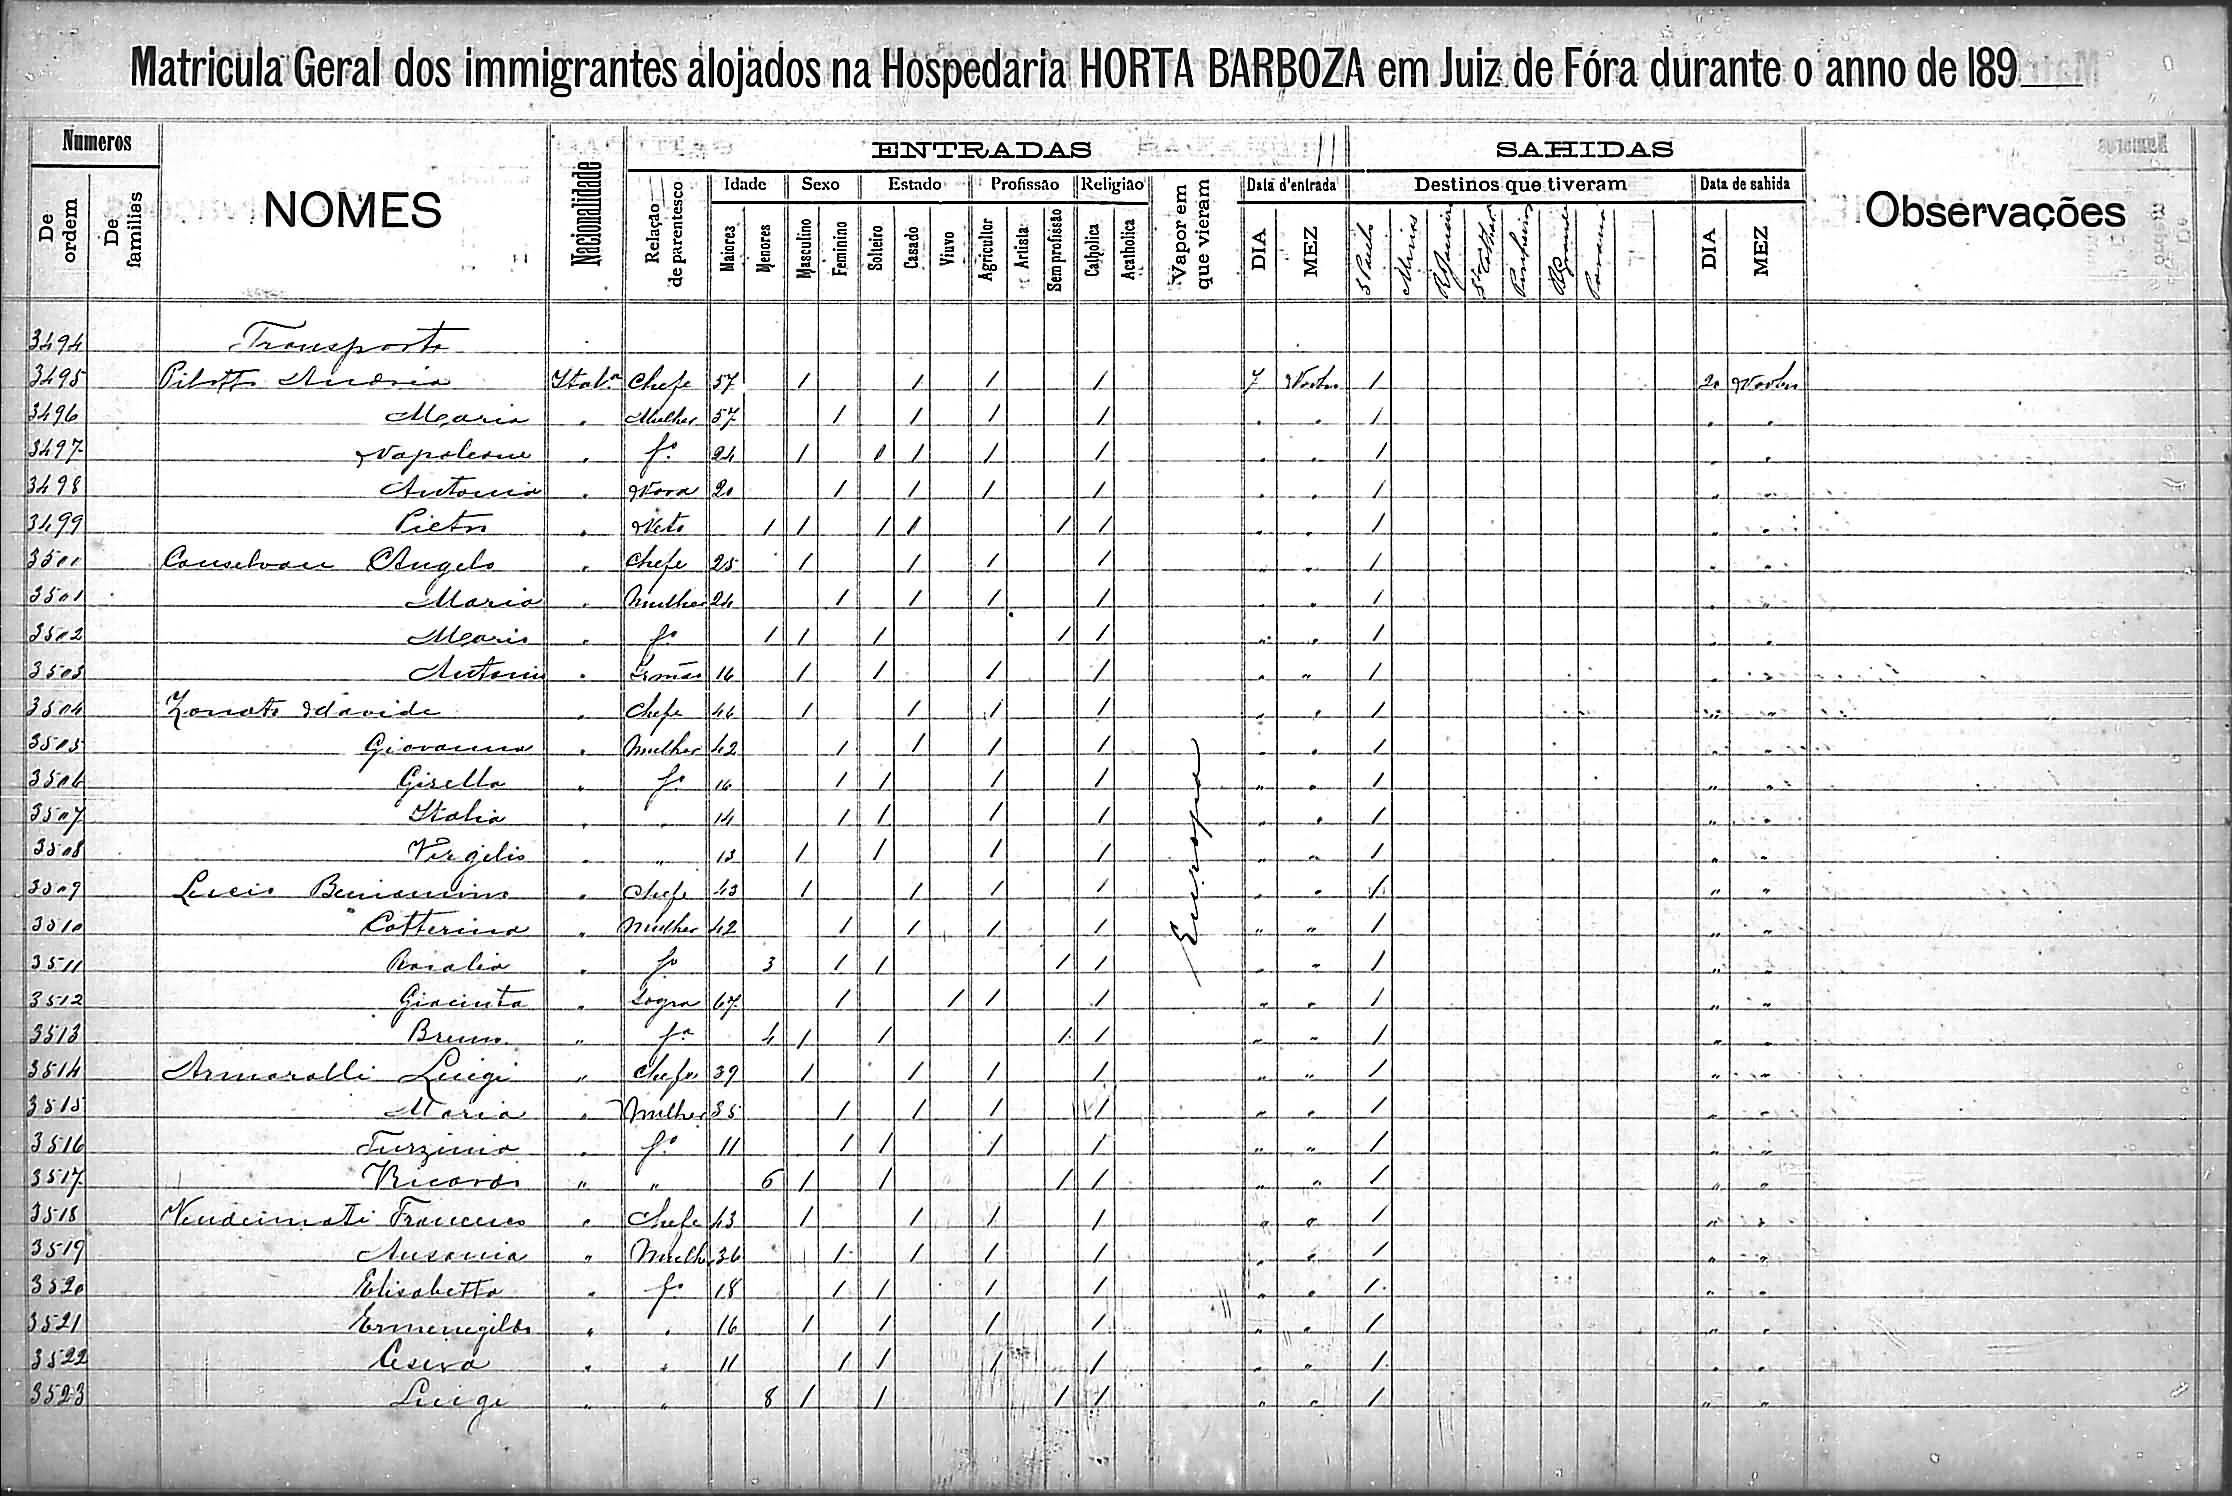 Matricula Geral dos immigrantes alojados na Hospedaria HORTA BARBOZA em Juiz de Fóra durante o anno de 189
Numeros ENTRADAS SAHIDAS
De ordem De familias NOMES Nacionalidade Relação de parentesco Idade Sexo Estado Profissão Religião Vapor em que vieram Data d'entrada Destinos que tiveram Data de sahida Observações
Maiores Menores Masculino Feminino Solteiro Casado Viuvo Agricultor Artista Sem profissão Catholica Acatholica DIA MEZ S Paulo Minas R Janeiro Sta Cathar Pinheiro R Grande Paraná DIA MEZ
3494 Transporte
3495 Pilotto Andrea Ital.ª Chefe 57 1 1 1 1 7 Novbro 1 20 Novbro
3496 Maria " Mulher 57 1 1 1 1 " " 1 " "
3497 Napoleone " fº 24 1 1 1 1 " " 1 " "
3498 Antonia " Nora 20 1 1 1 1 " " 1 " "
3499 Pietro " Neto 1 1 1 1 1 1 " " 1 " "
3500 Conselvan Angelo " Chefe 25 1 1 1 1 " " 1 " "
3501 Maria " Mulher 24 1 1 1 1 " " 1 " "
3502 Mario " fº 1 1 1 1 1 " " 1 " "
3503 Antonio " Irmão 16 1 1 1 1 " " 1 " "
3504 Zonato Davide " Chefe 46 1 1 1 1 " " 1 " "
3505 Giovanna " Mulher 42 1 1 1 1 " " 1 " "
3506 Gisella " fª 16 1 1 1 1 " " 1 " "
3507 Italia " " 14 1 1 1 1 " " 1 " "
3508 Virgilio " " 13 1 1 1 1 " " 1 " "
3509 Lucio Beniamino " Chefe 43 1 1 1 1 " " 1 " "
3510 " Catterina " Mulher 42 1 1 1 1 " " 1 " "
3511 Rosalia " fª 3 1 1 1 1 " " 1 " "
3512 Giacinta " Sogra 67 1 1 1 1 " " 1 " "
3513 Bruno " fº 4 1 1 1 1 " " 1 " "
3514 Armaralli Luigi " Chefe 39 1 1 1 1 " " 1 " "
3515 Maria " Mulher 35 1 1 1 1 " " 1 " "
3516 Turzinia " fª 11 1 1 1 1 " " 1 " "
3517 Ricardo " " 6 1 1 1 1 " " 1 " "
3518 Francesco " Chefe 43 1 1 1 1 " " 1 " "
3519 Ausonia " Mulh 36 1 1 1 1 " " 1 " "
3520 Elisabetta " fª 18 1 1 1 1 " " 1 " "
3521 Ermenegildo " " 16 1 1 1 1 " " 1 " "
3522 " " 11 1 1 1 1 " " 1 " "
3523 Luigi " " 8 1 1 1 1 " " 1 " "
Europa